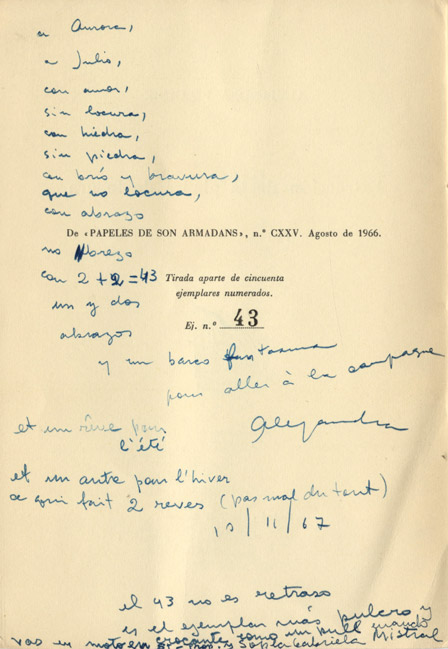 a Aurora,
a Julio,
con amor,
sin locura,
con hiedra,
sin piedra,
con brío y bravura,
que no locura,
con abrazo
De «PAPELES DE SON ARMADANS», n.º CXXV. Agosto de 1966.
no brezo
con 2 + 2 = 43
Tirada aparte de cincuenta
ejemplares numerados.
un y dos
Ej. n.º 43
abrazos
y un barco fantasma
pour aller à la campagne
Alejandra
et un rêve pour
l'été
et un autre pour l'hiver
ce qui fait 2 rêves (pas mal du tout)
10/11/67
el 43 no es retraso
es el ejemplar más pulcro y
crocante como un pull cuando
vas en moto
Sopla Gabriela Mistral